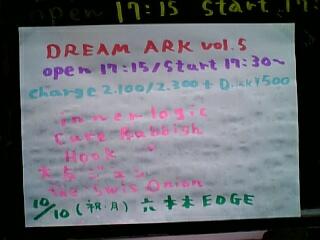 open 17:15 Start 17:
DREAM ARK vol.5
open 17:15/Start 17:30~
charge 2.100/2.300 + D.ink¥500
inner logic
Cure Rubbish
Hook
the Swis Onion
10/10 (祝.月) 六本木 EDGE